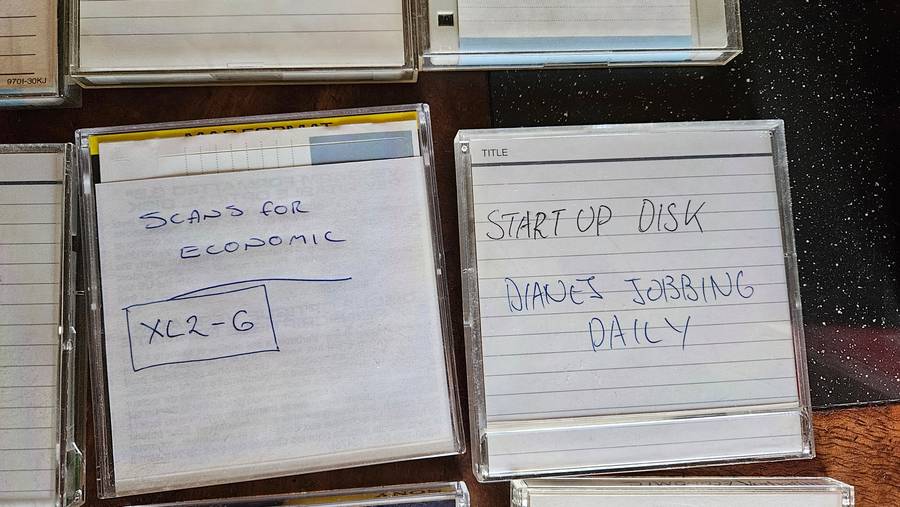 9701-30KJ
MAC FORMAT
SCANS FOR
ECONOMIC
XL2-G
TITLE
START UP DISK
DIANES JOBBING
DAILY
SONY